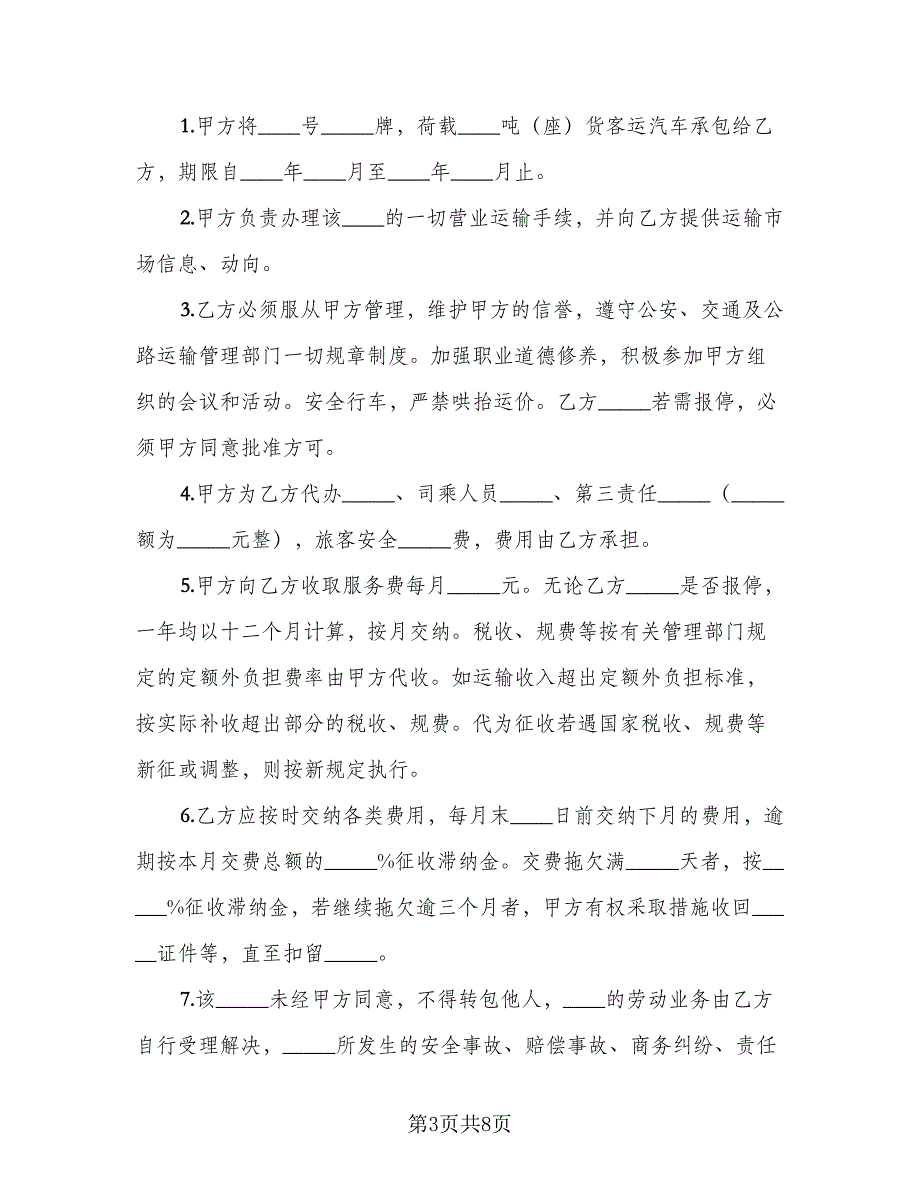 1.甲方将____号_____牌，荷载____吨（座）货客运汽车承包给乙
方，期限自____年____月至____年____月止。
2.甲方负责办理该____的一切营业运输手续，并向乙方提供运输市
场信息、动向。
3.乙方必须服从甲方管理，维护甲方的信誉，遵守公安、交通及公
路运输管理部门一切规章制度。加强职业道德修养，积极参加甲方组
织的会议和活动。安全行车，严禁哄抬运价。乙方_____若需报停，必
须甲方同意批准方可。
4.甲方为乙方代办_____、司乘人员_____、第三责任_____（_____
额为_____元整），旅客安全_____费，费用由乙方承担。
5.甲方向乙方收取服务费每月_____元。无论乙方_____是否报停，
一年均以十二个月计算，按月交纳。税收、规费等按有关管理部门规
定的定额外负担费率由甲方代收。如运输收入超出定额外负担标准，
按实际补收超出部分的税收、规费。代为征收若遇国家税收、规费等
新征或调整，则按新规定执行。
6.乙方应按时交纳各类费用，每月末____日前交纳下月的费用，逾
期按本月交费总额的_____%征收滞纳金。交费拖欠满_____天者，按__
___%征收滞纳金，若继续拖欠逾三个月者，甲方有权采取措施收回___
__证件等，直至扣留_____。
7.该_____未经甲方同意，不得转包他人，____的劳动业务由乙方
自行受理解决，_____所发生的安全事故、赔偿事故、商务纠纷、责任
第3页共8页